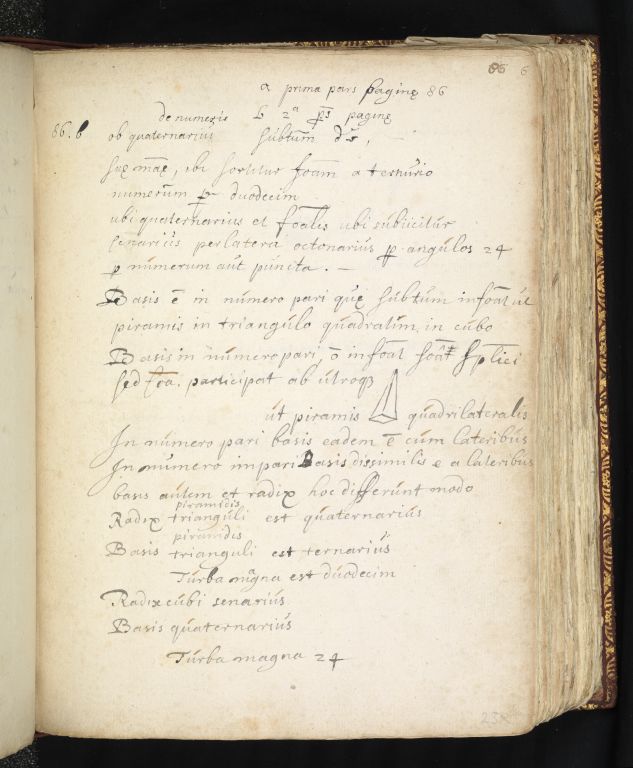 86 6
a prima pars paginę 86
de numeris b 2ª ps paginę
86. b ob quaternarius subtum ds, -
suę mãę, ibi sortitur foam a ternario
numerum p duodecim
ubi quaternarius et foalis ubi subiicitur
senariis perlatera octonarius p angulos 24
p numerum aut puncta. -
Basis ē in numero pari quę subtum infoat ut
piramis in triangulo quadratum in cubo
Basis in numero pari, ō infoat
sed participat ab utroq3
ut piramis quadrilateralis
In numero pari basis eadem ē cum lateribus
In numero impari Basis dissimilis e a lateribus
basis autem et radix hoc differunt modo
piramidis
Radix trianguli est quaternarius
piramidis
Basis trianguli est ternarius
Turba magna est duodecim
Radix cubi senarius
Basis quaternarius
Turba magna 24